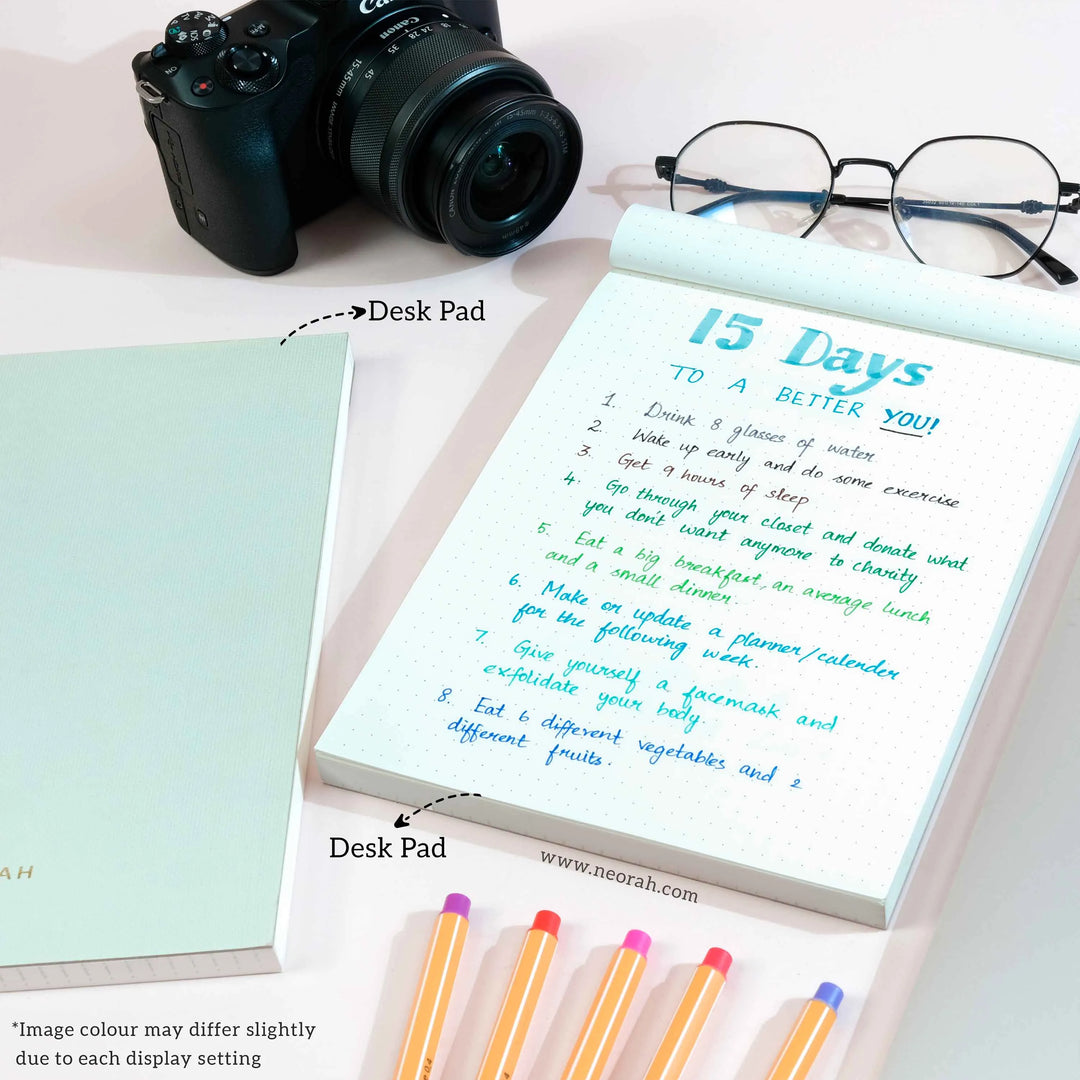 Canon
Canon
ON
18 24 28 35
45
15-45mm
Desk Pad
15 Days
TO A BETTER YOU!
1. Drink 8 glasses of water
2. Wake up early and do some excercise
3. Get 9 hours of sleep
4. Go through your closet and donate what
you don't want anymore to charity.
5. Eat a big breakfast, an average lunch
and a small dinner.
6. Make or update a planner/calender
for the following week.
7. Give yourself a facemask and
exfolidate your body.
8. Eat 6 different vegetables and 2
different fruits.
Desk Pad
www.neorah.com
AH
0.4
*Image colour may differ slightly
due to each display setting